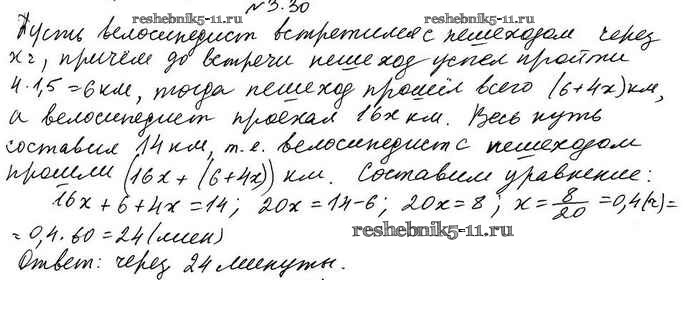 №3.30
reshebnik5-11.ru
Пусть велосипедист встретился с пешеходом через
x ч, причём до встречи пешеход успел пройти
4·1,5=6 км, тогда пешеход прошёл всего (6+4x) км,
а велосипедист проехал 16x км. Весь путь
составил 14 км, т.е. велосипедист с пешеходом
прошли (16x+(6+4x)) км. Составим уравнение:
16x+6+4x=14; 20x=14-6; 20x=8; x=8/20=0,4(ч)=
=0,4·60=24(мин)
reshebnik5-11.ru
Ответ: через 24 минуты.
reshebnik5-11.ru